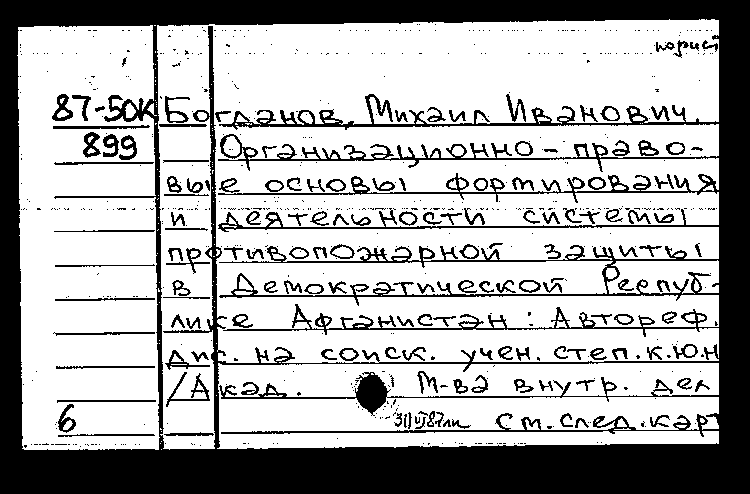 юрист
87-50К Богданов, Михаил Иванович.
899 Организационно-право-
вые основы формирования
и деятельности системы
противопожарной защиты
в Демократической Респуб-
лике Афганистан: Автореф.
дис. на соиск. учен. степ. к.ю.н
/Акад. М-ва внутр. дел
6 см. след. карт